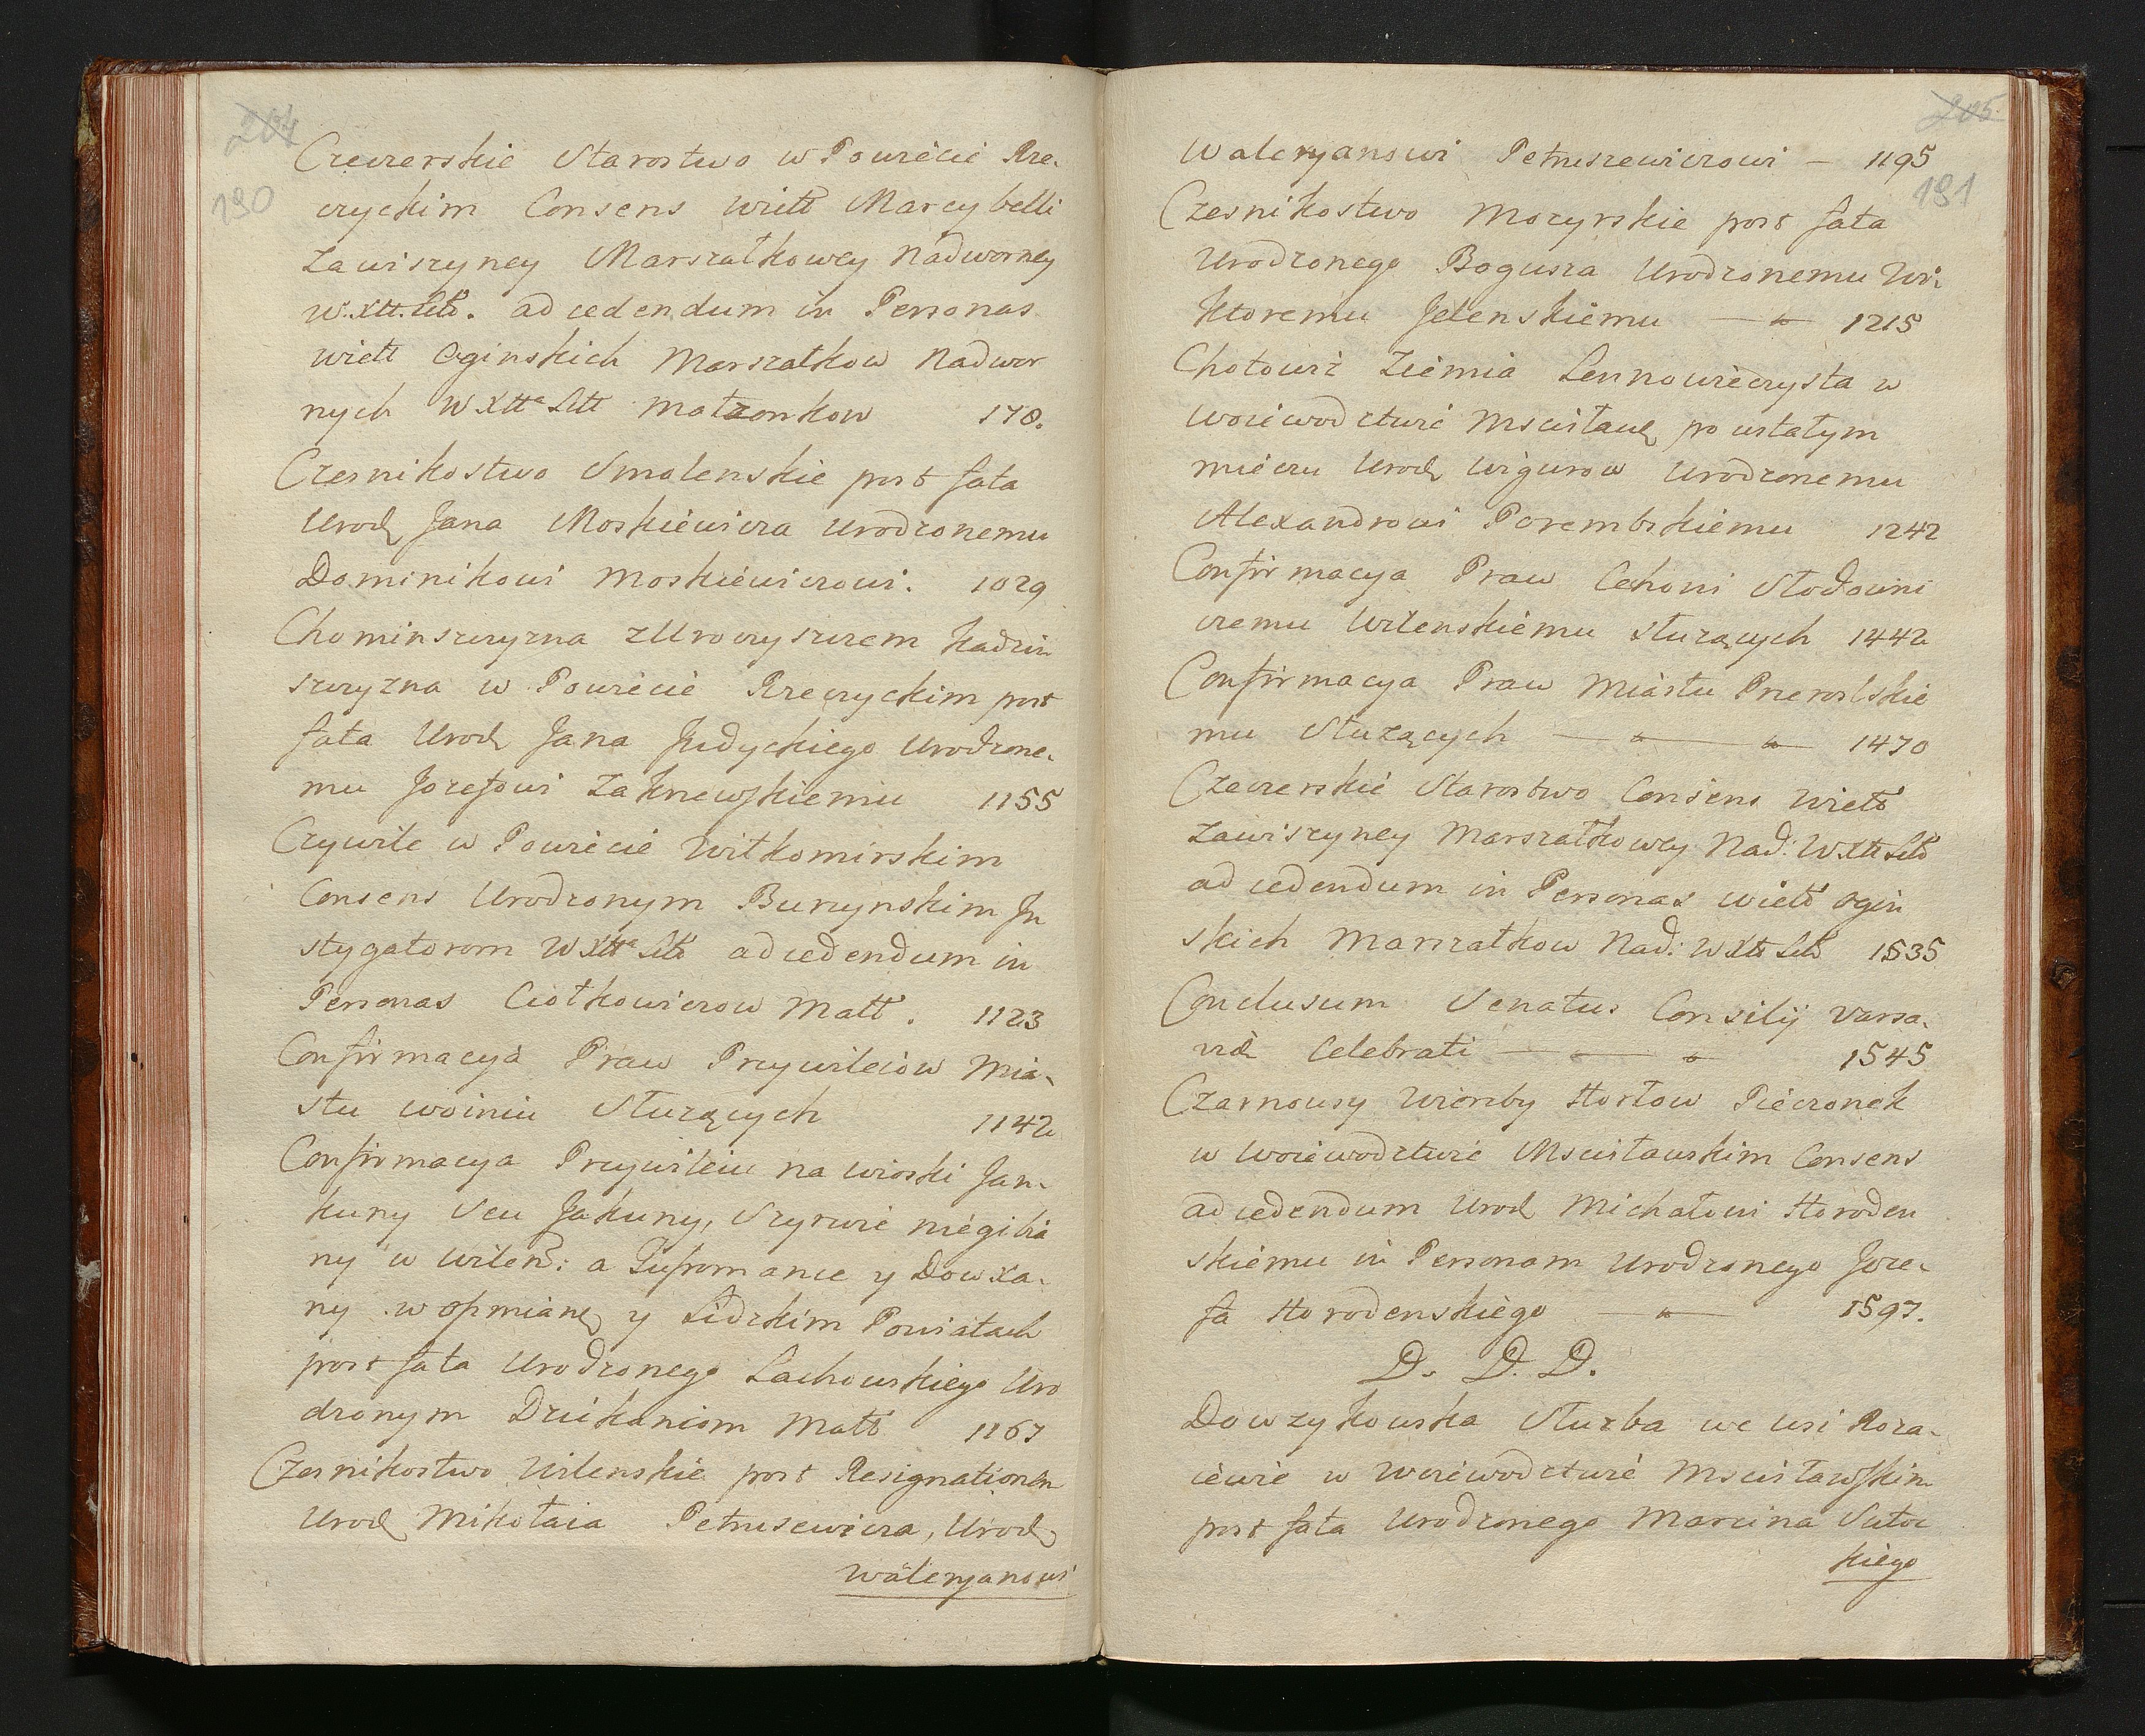 204
190
Czeczerskie Starostwo w Powiecie Rze-
czyckim Consens Wielł Marcybelli
Zawiszyney Marszałkowey Nadworney
W. Xtt. Litt. ad cedendum in Personas
Wielł Oginskich Marszałkow Nadwor
nych W Xtta Litt Małżonkow 178.
Czesnikostwo Smolenskie post fata
Urod Jana Moskiewicza Urodzonemu
Dominikowi Moskiewiczowi. 1029
Chominszczyzna z Uroczyszczem Kadzin
szczyzna w Powiecie Rzeczyckim post
fata Urod Jana Judyckiego Urodzone-
mu Jozefowi Zaknewskiemu 1155
Czywile w Powiecie Wiłkomirskim
Consens Urodzonym Burzynskim In
stygatorom W Xtta Litt ad cedendum in
Personas Ciotkowiczow Małł. 1123
Confirmacya Praw Przywileiow Mia-
stu Woiniu Służących 1142
Confirmacya Przywileiu na wioski Jan-
kuny Seu Jakuny, Szyrwie niegibia
ny w Wileń: a Tupromance y Dowxa-
ny w Oszmianę y Lidzkim Powiatach
post fata Urodzonego Lachowskiego Uro
dzonym Dziekaniom Małł 1167
Czesnikostwo Wilenskie post Resignationem
Urod Mikołaia Petrusewicza, Urod
Waleryanowi
205
191
Waleryanowi Petruszewiczowi — 1195
Czesnikostwo Mozyrskie post fata
Urodzonego Bogusza Urodzonemu Wi-
ktoremu Jelenskiemu — 1215
Chotowiż Ziemia Lennowieczysta w
Woiewodztwie Mscisławę po ustałym
mieczu Urod Wigurow Urodzonemu
Alexandrowi Porembskiemu 1242
Confirmacya Praw Cechowi Słodowni
czemu Wilenskiemu służących 1442
Confirmacya Praw Miastu Przeroslskie
mu Służących — 1470
Czeczerskie Starostwo Consens Wielł
Zawiszyney Marszałkowey Nad: W Xtt Litt
ad cedendum in Personas Wielł Ogin
skich Marszałkow Nad: W Xtt Litt 1535
Conclusum Senatus Consilij Varsa-
viæ Celebrati — 1545
Czarnousy Wierzby Horłow Pieczonek
w Woiewodztwie Mscisławskim Consens
ad cedendum Urod Michałowi Horoden
skiemu in Personam Urodzonego Joze-
fa Horodenskiego — 1597.
D. D. D.
Dowzykowska Służba we wsi Roza-
ciewie w Woiewodztwie Mscisławskim
post fata Urodzonego Marcina Sutoc
kiego